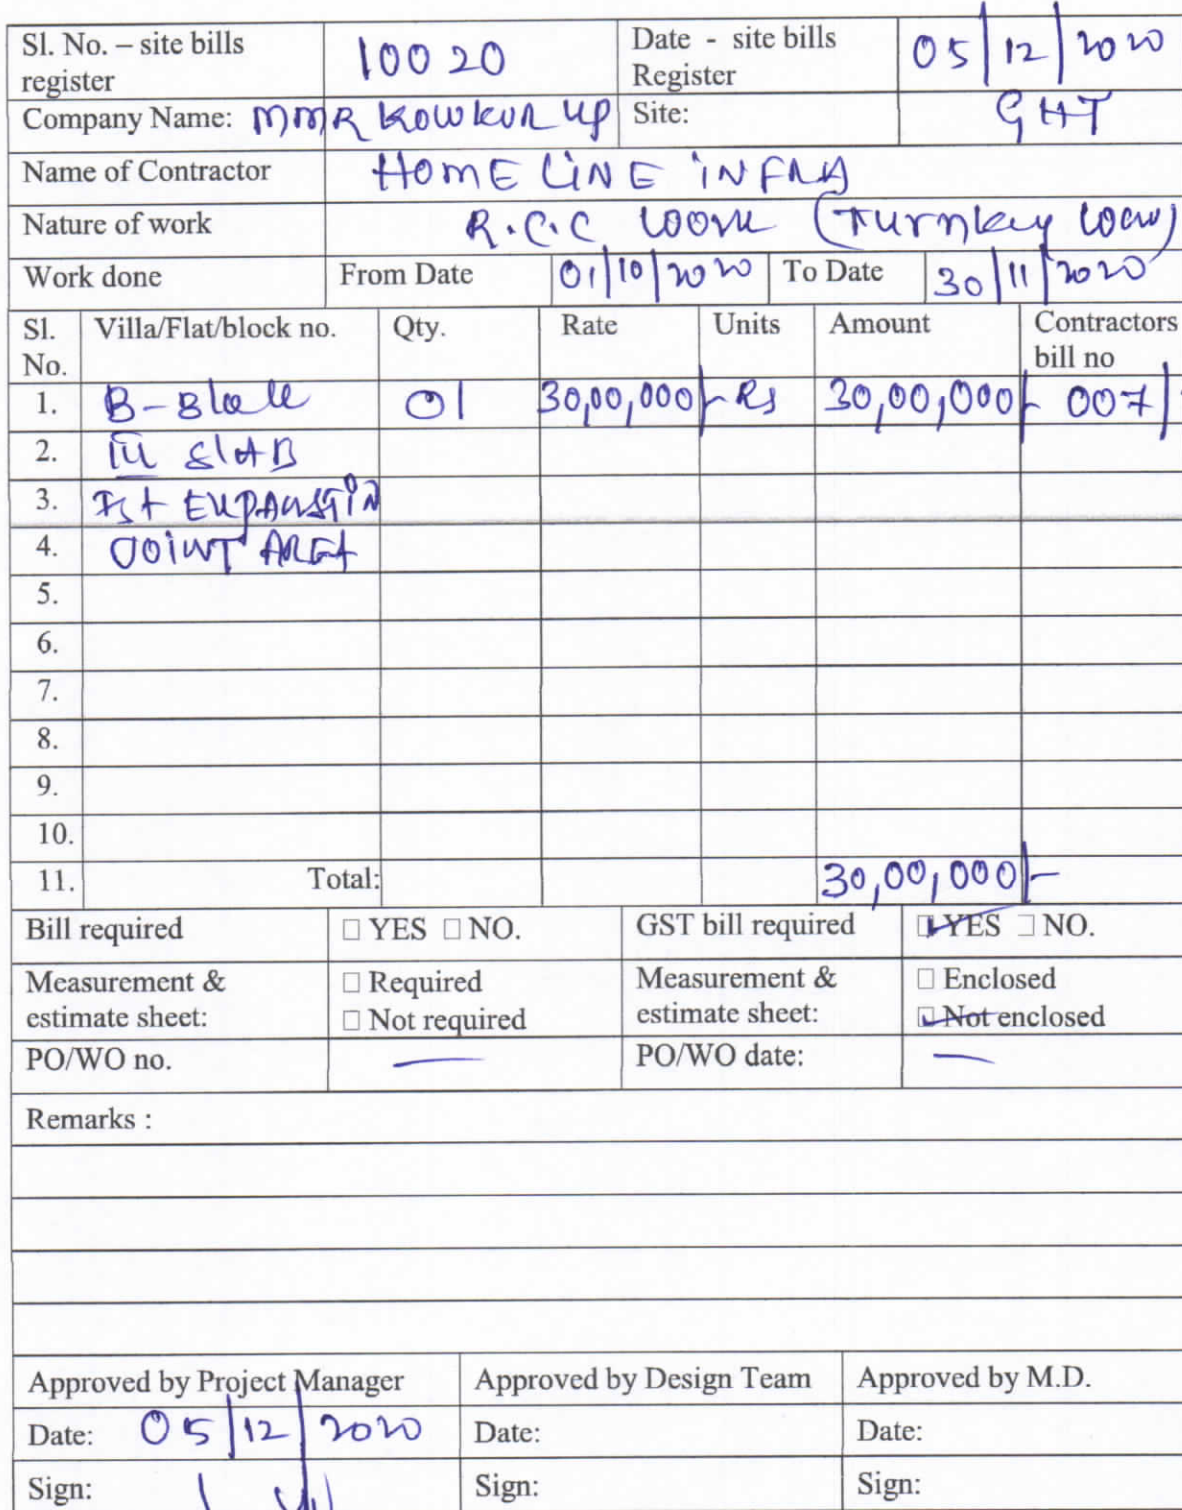 Sl. No. – site bills register 10020 Date - site bills Register 05/12/2020
Company Name: MMR KOWKUR LLP Site: GHT
Name of Contractor HOME LINE INFRA
Nature of work R.C.C work (Turnkey
Work done From Date 01/10/2020 To Date 30/11/2020
Sl. No. Villa/Flat/block no. Qty. Rate Units Amount Contractors bill no
1. B-Block 01 30,00,000/- Rs 30,00,000/- 007
2. III SLAB
3. Ist EXPANSTIN
4. JOINT AREA
5.
6.
7.
8.
9.
10.
11. Total: 30,00,000/-
Bill required □ YES □ NO. GST bill required □ YES □ NO.
Measurement & estimate sheet: □ Required □ Not required Measurement & estimate sheet: □ Enclosed □ Not enclosed
PO/WO no. — PO/WO date: —
Remarks :
Approved by Project Manager Approved by Design Team Approved by M.D.
Date: 05/12/2020 Date: Date:
Sign: Sign: Sign: